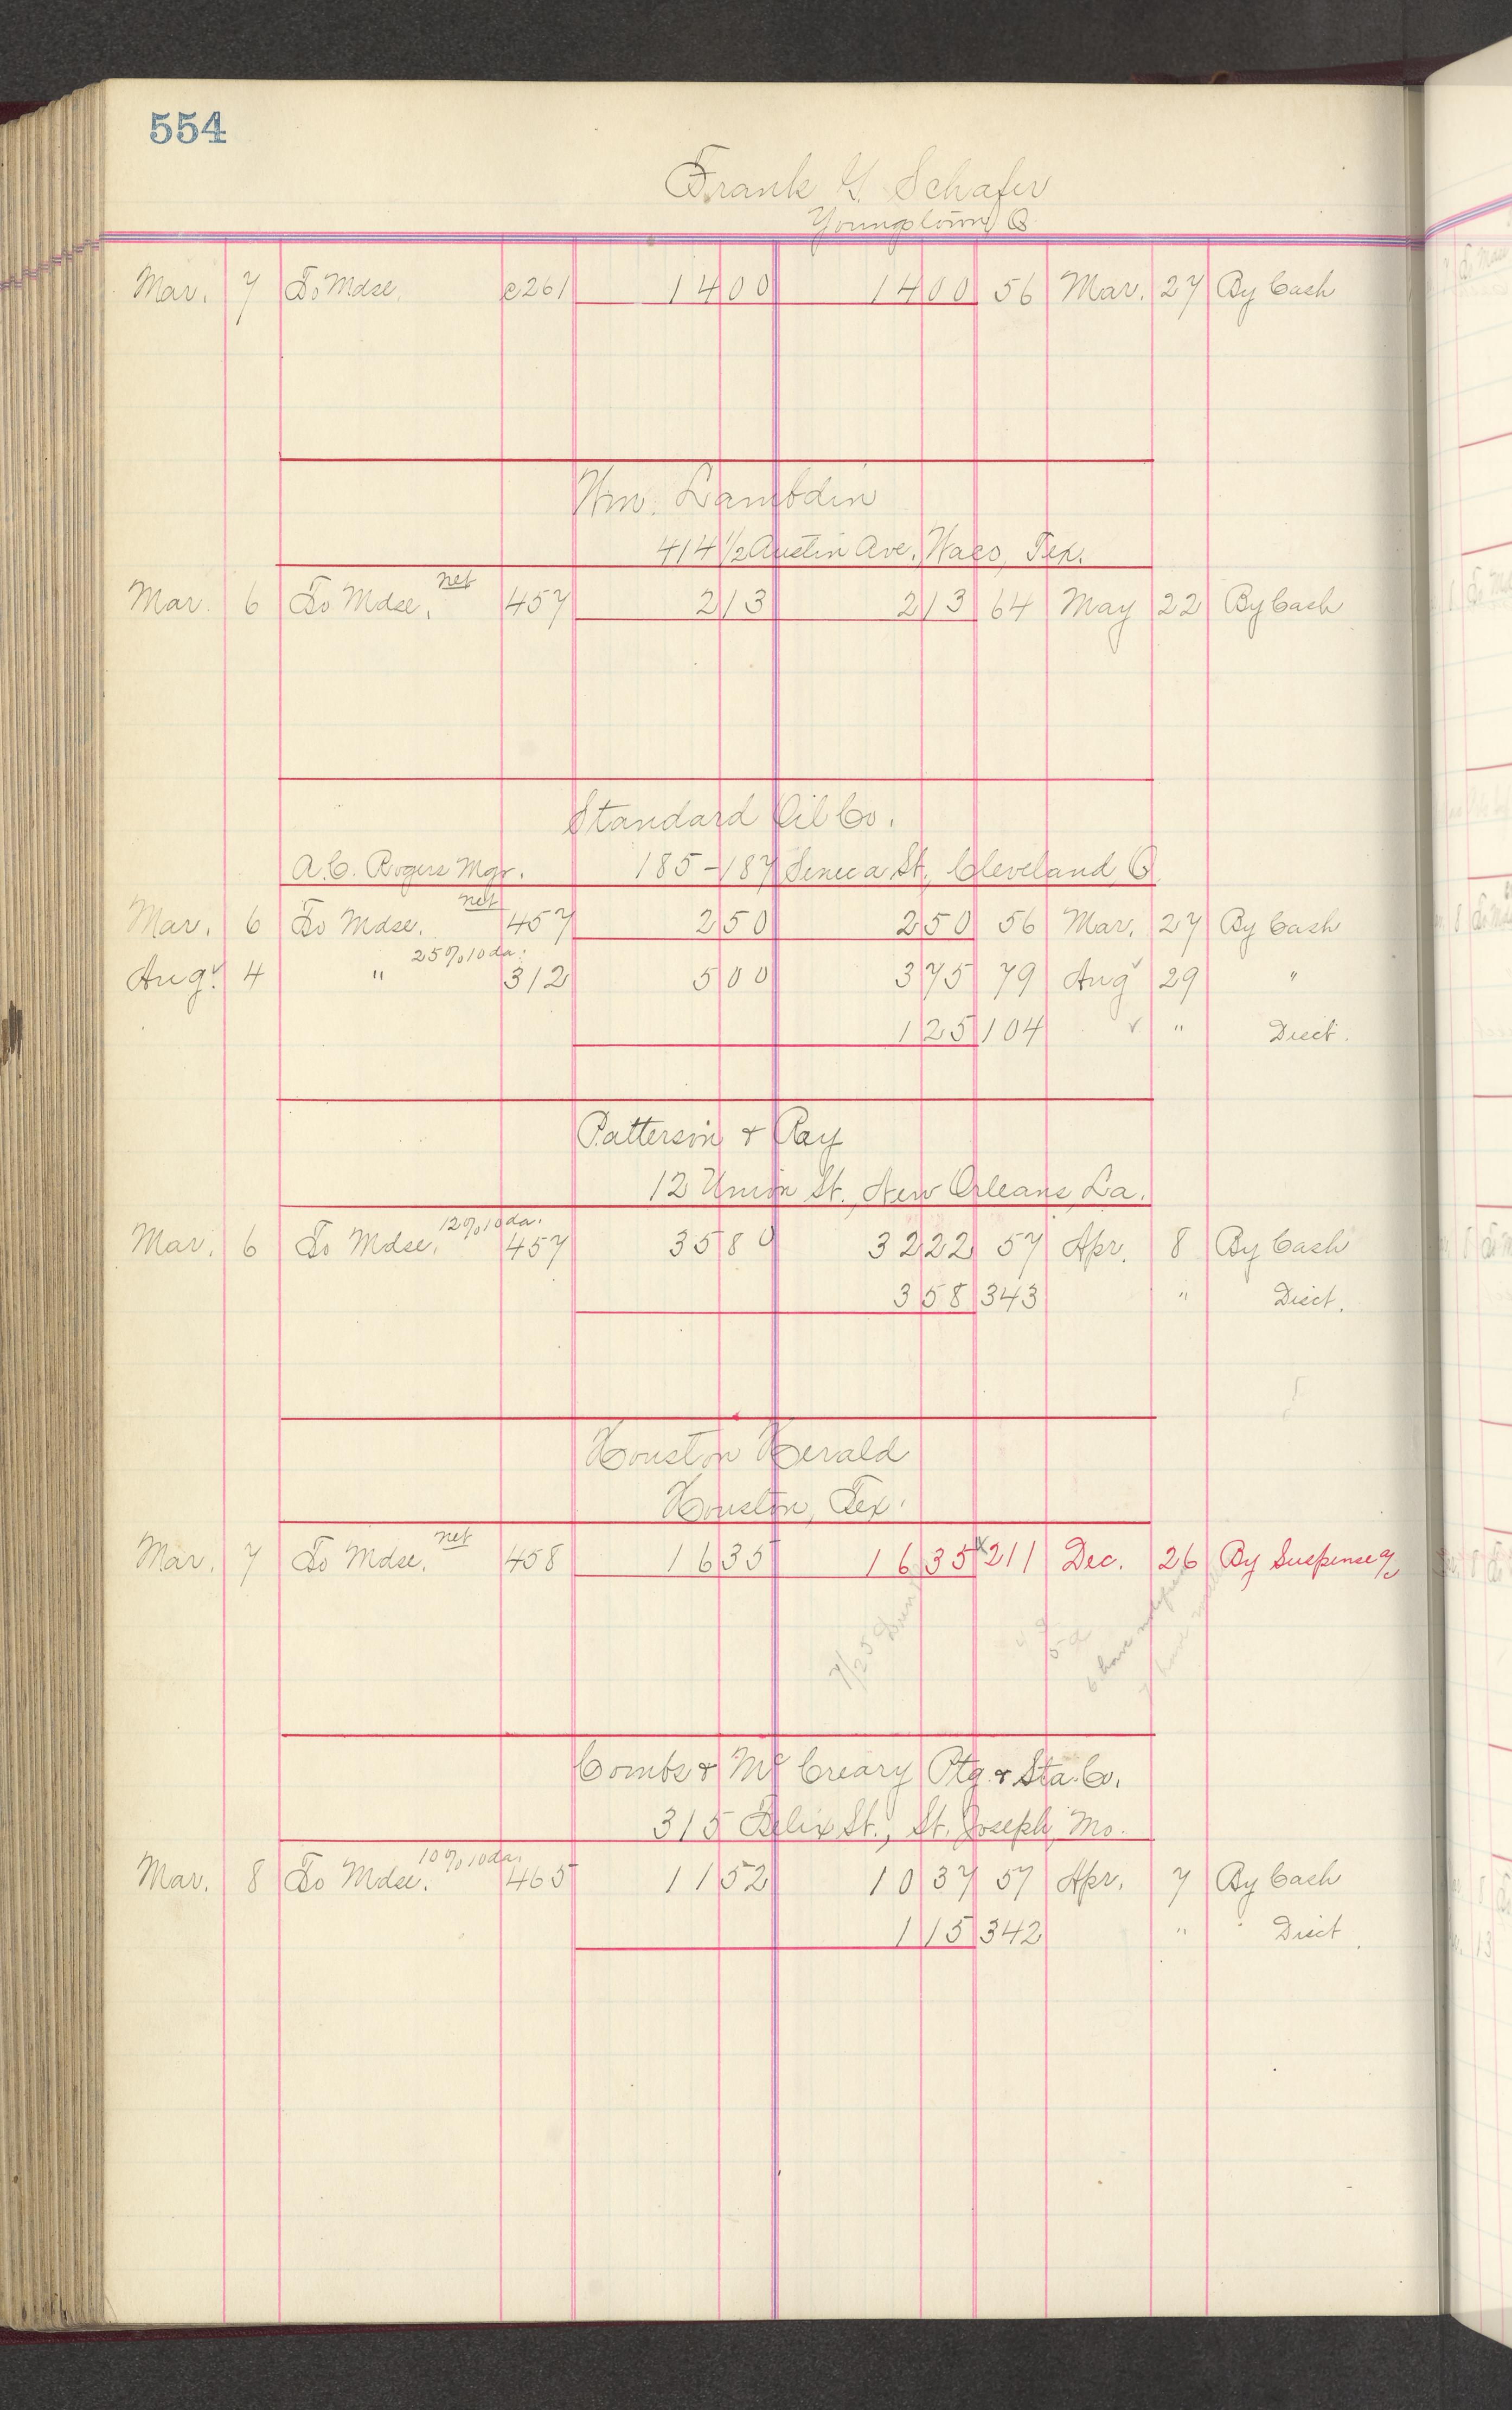 554
Frank G. Schafer
Youngstown O
Mar. 7 To Mdse. c261 14 00 14 00 56 Mar. 27 By Cash
Wm. Lambdin
414 1/2 Austin Ave. Waco, Tex.
Mar. 6 To Mdse. net 457 2 13 2 13 64 May 22 By Cash
Standard Oil Co.
A.C. Rogers Mgr. 185-187 Seneca St., Cleveland, O.
Mar. 6 To Mdse. net 457 2 50 2 50 56 Mar. 27 By Cash
Aug. 4 " 25% 10 da. 312 5 00 3 75 79 Aug 29 "
1 25 104 " Disct.
Patterson & Ray
12 Union St., New Orleans, La.
Mar. 6 To Mdse. 12% 10 da. 457 35 80 32 22 57 Apr. 8 By Cash
3 58 343 " Disct.
Houston Herald
Houston, Tex.
Mar. 7 To Mdse. net 458 16 35 16 35 x 211 Dec. 26 By Suspense a/c
7/25
6 have
have
Combs & McCreary Ptg. & Sta. Co.
315 Felix St., St. Joseph, Mo.
Mar. 8 To Mdse. 10% 10 da. 465 11 52 10 37 57 Apr. 7 By Cash
1 15 342 " Disct